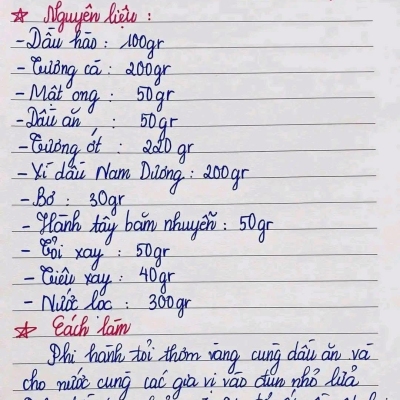 ☆ Nguyên liệu :
- Dầu hào : 100gr
- Tương cà : 200gr
- Mật ong : 50gr
- Dầu ăn : 50gr
- Tương ớt : 220 gr
- Xì dầu Nam Dương : 200gr
- Bơ : 30gr
- Hành tây băm nhuyễn : 50gr
- Tỏi xay : 50gr
- Tiêu xay : 40gr
- Nước lọc : 300gr
☆ Cách làm
Phi hành tỏi thơm vàng cùng dầu ăn và
cho nước cùng các gia vị vào đun nhỏ lửa